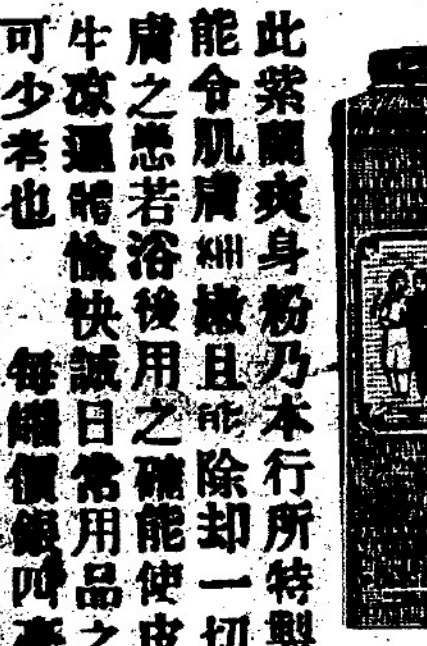 此紫蘭爽身粉乃本行所特製
能令肌膚細嫩且能除却一切
膚之患若浴後用之確能使皮
生凉遍體愉快誠日常用品之
可少者也　每罐價銀四毫